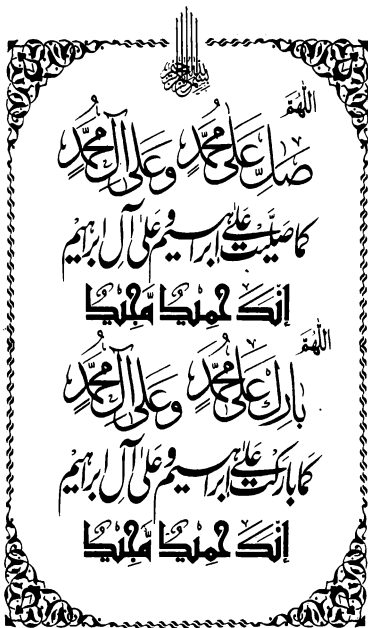 بسم الله الرحمن الرحيم
اللّٰهمّ
صلِّ على محمّد وعلى آل محمّد
كما صلّيت على إبراهيم وعلى آل ابراهيم
إنّك حميد مّجيد
اللّٰهمّ
بارك على محمّد وعلى آل محمّد
كما باركت على إبراهيم وعلى آل ابراهيم
إنّك حميد مّجيد